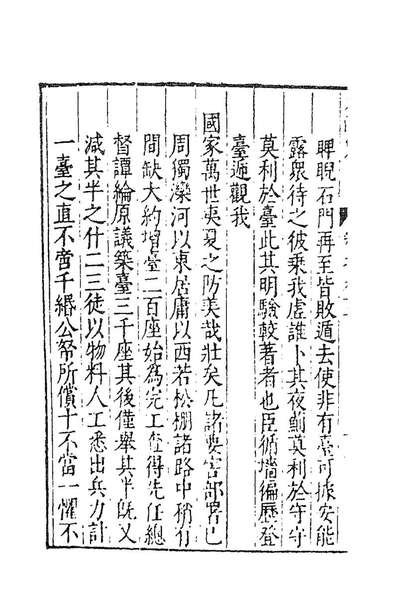 睥睨石門再至皆敗遁去使非有臺可據安能
露眾待之彼乗我虛誰卜其夜前莫利於守守
莫利於臺此其明驗較著者也臣循墻徧歷登
臺遞觀我
國家萬世夷夏之防美哉壯矣凡諸要害部署已
周獨灤河以東居庸以西若松棚諸路中稍有
間缺大約增臺二百座始為完工查得先任總
督譚綸原議築臺三千座其後僅舉其半既又
減其半之什二三徒以物料人工悉出兵力計
一臺之直不啻千緡公帑所償十不當一懼不